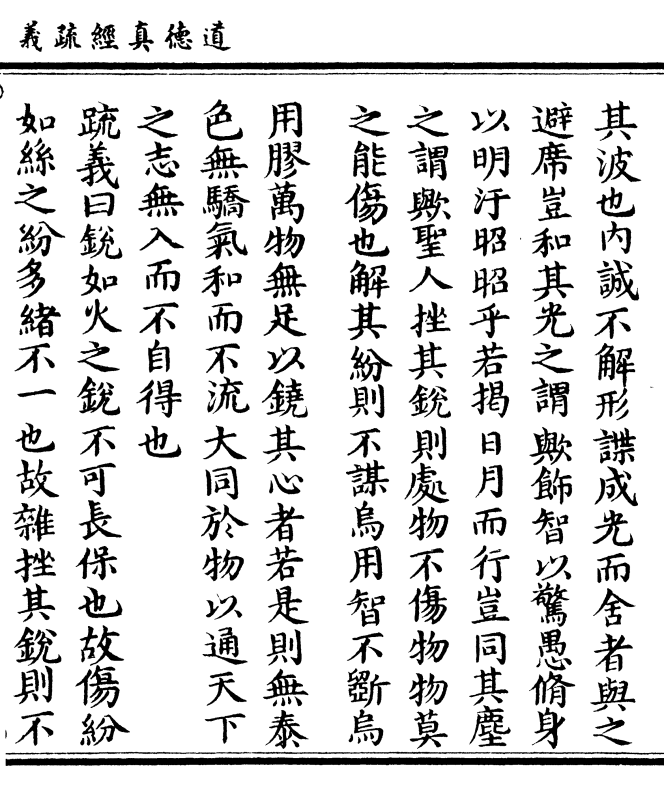 道德真經疏義
其波也內誠不解形諜成光而舍者與之
避席豈和其光之謂歟飾智以驚愚脩身
以明汙昭昭乎若揭日月而行豈同其塵
之謂歟聖人挫其銳則處物不傷物物莫
之能傷也解其紛則不謀烏用智不斵烏
用膠萬物無足以鐃其心者若是則無泰
色無驕氣和而不流大同於物以通天下
之志無入而不自得也
疏義曰銳如火之銳不可長保也故傷紛
如絲之紛多緒不一也故雜挫其銳則不